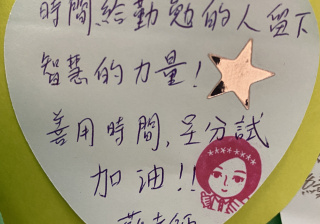 時間給勤勉的人留下
智慧的力量!
善用時間,呈分試
加油!!